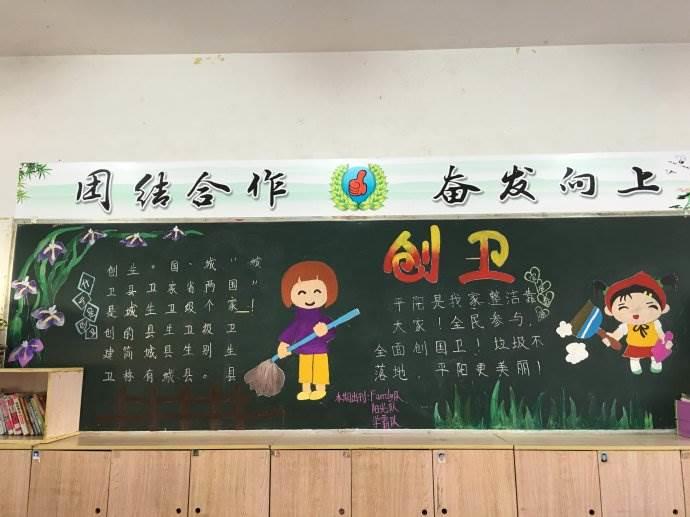 团结合作 奋发向上
创卫是创建卫
生县城的简称
。卫生县城有
国家卫生县城
、省级卫生县
城两个级别。
“国家卫生县
城”!
创卫
平阳是我家整洁靠
大家!全民参与,
全面创国卫!垃圾不
落地,平阳更美丽!
本期出刊:Family队
阳光队
学霸队